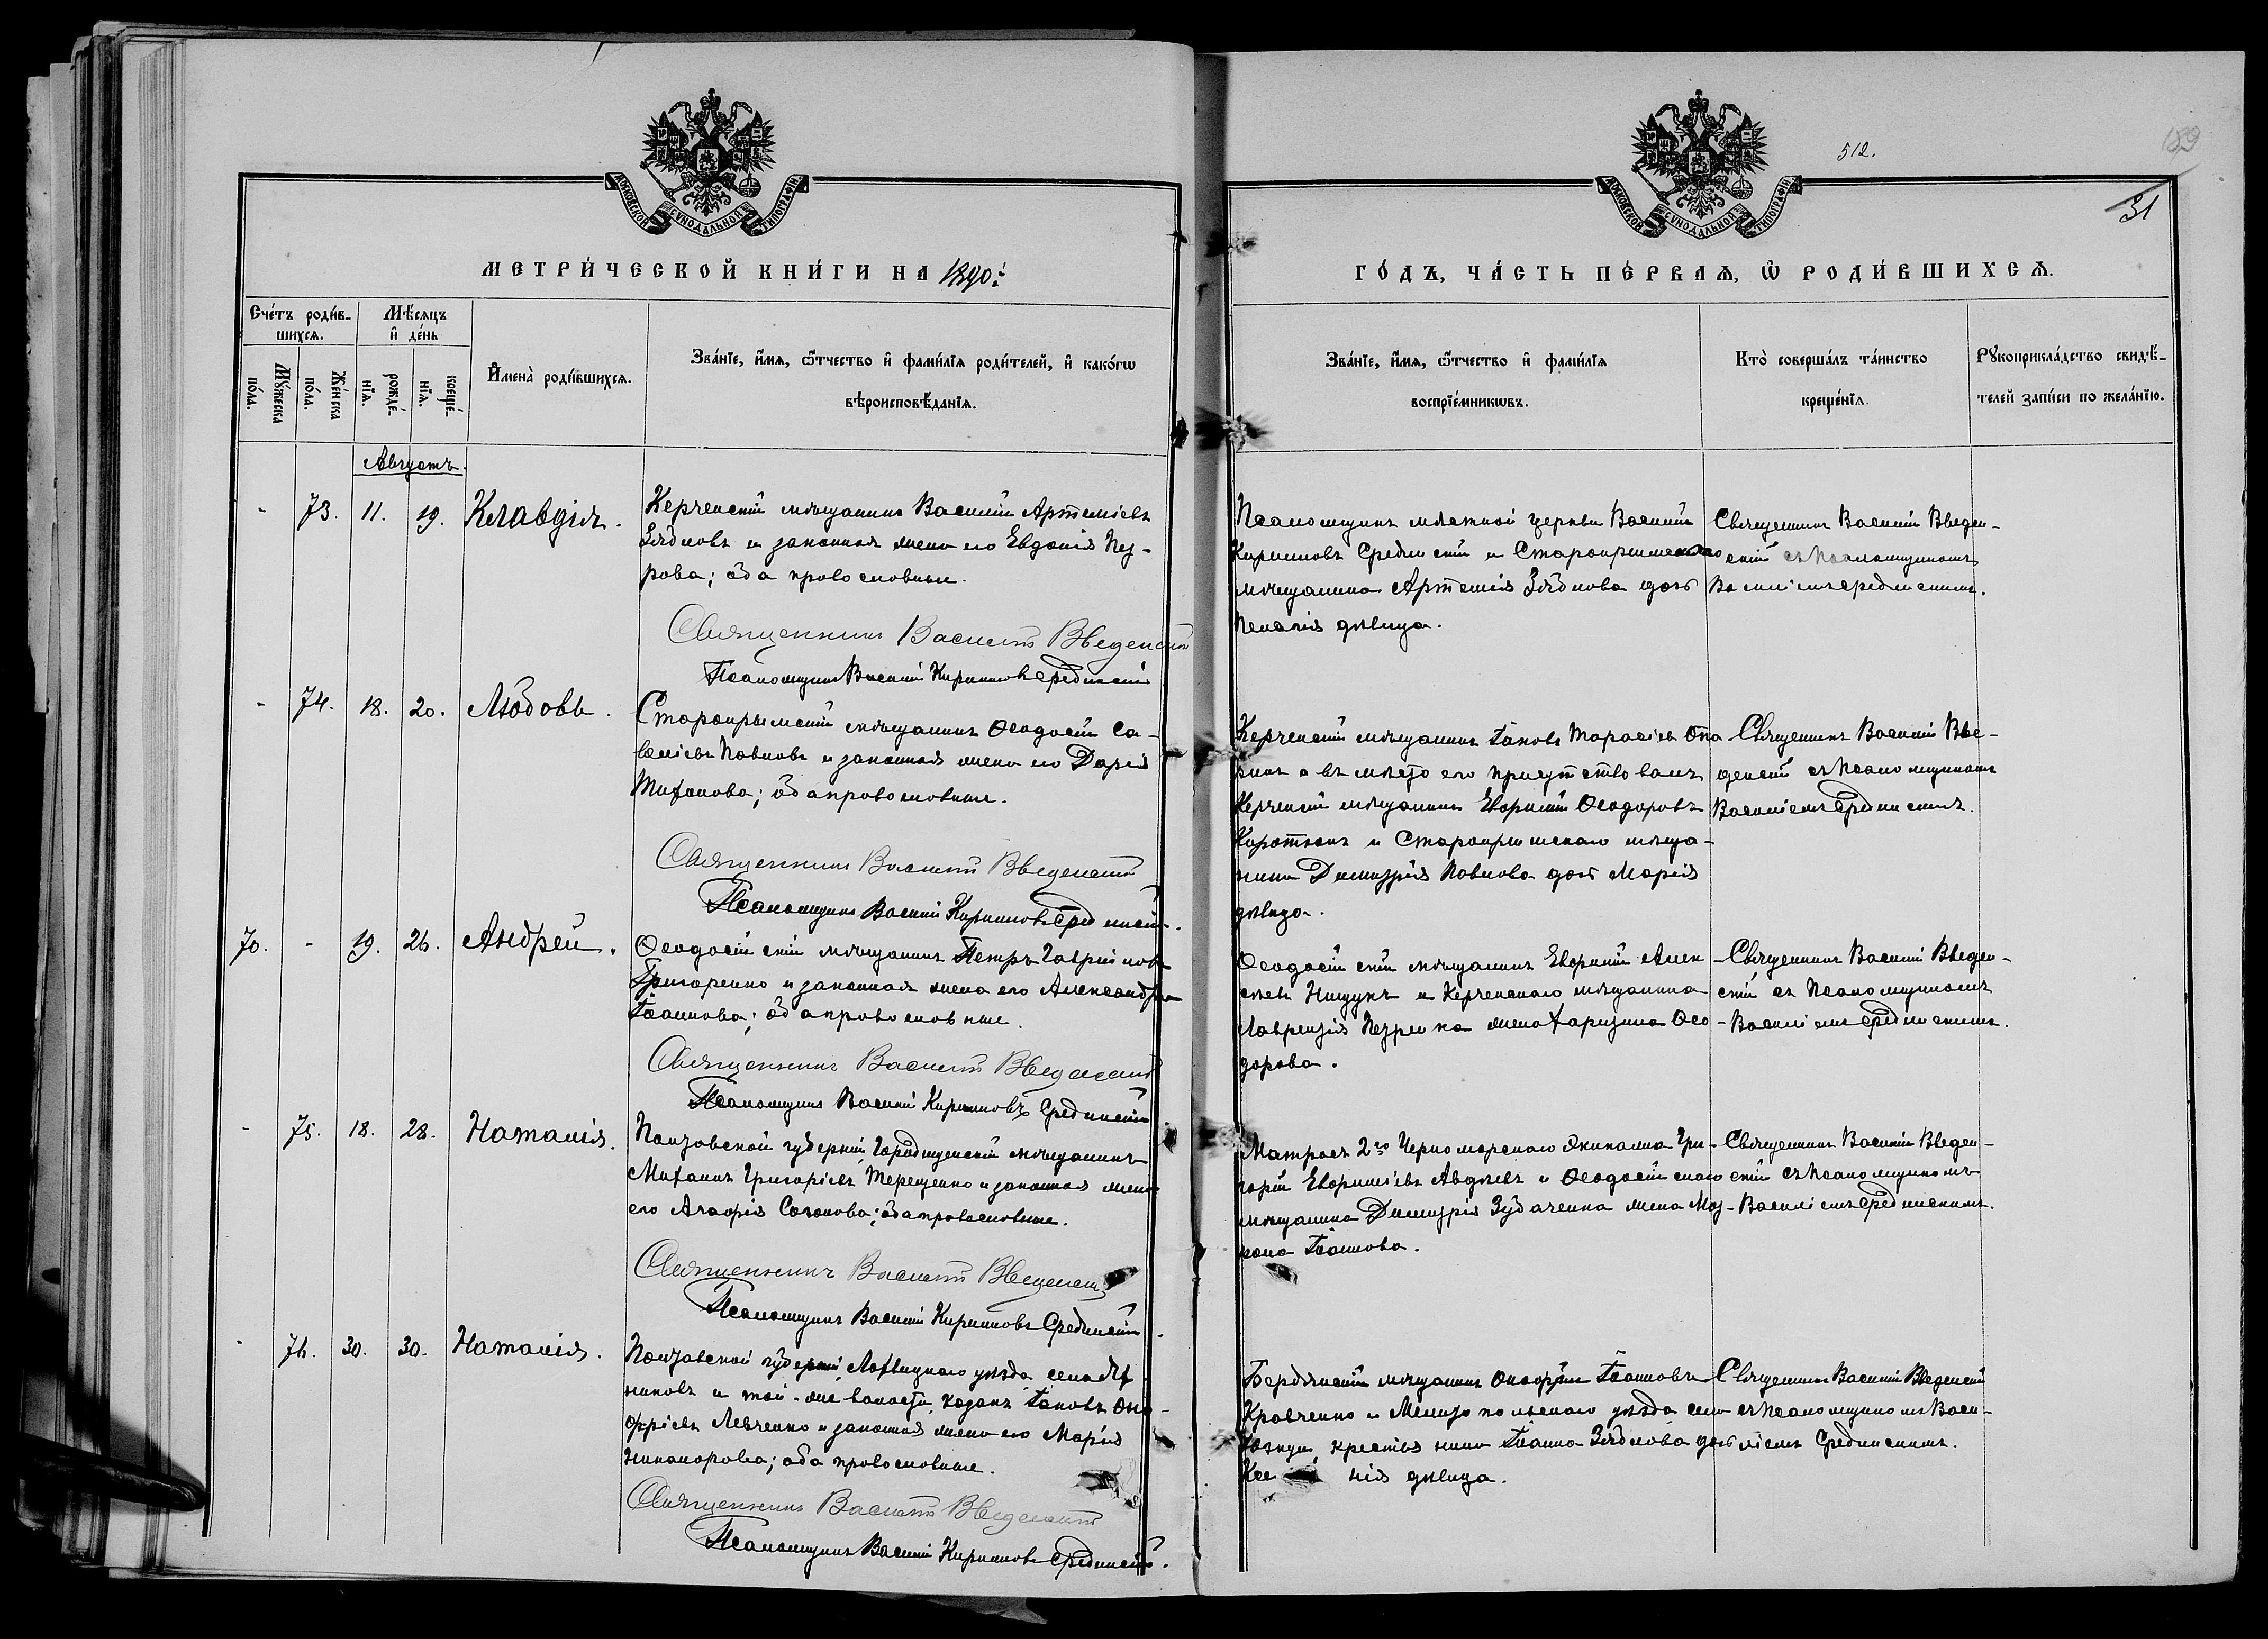 МОСКОВСКОЙ СѴНОДАЛЬНОЙ ТИПОГРАФІИ
МЕТРИ́ЧЕСКОЙ КНИ́ГИ НА 1890:
Сче́тъ роди́в-
шихсѧ.
Мѣ́сѧцъ
и҆ де́нь
Мꙋ́жеска
по́ла.
Же́нска
по́ла.
рожде́-
нїѧ.
креще́-
нїѧ.
И҆мена̀ роди́вшихсѧ.
Зва́нїе, и҆́мѧ, ѻ҆́тчество и҆ фами́лїѧ роди́телей, и҆ како́гѡ
вѣроисповѣ́данїѧ.
Августъ.
- 73. 11. 19. Клавдія.
Керченскій мѣщанинъ Василій Артеміевъ
Зябловъ и законная жена его Евдокія Пет-
рова; оба православные.
Священникъ Василій Введенскій
Псаломщикъ Василій Кирилловъ Срединскій
- 74. 18. 20. Любовь.
Старокрымскій мѣщанинъ Ѳеодосій Са-
Павловъ и законная жена его Дарія
Тиханова; оба православные.
Священникъ Василій Введенскій
Псаломщикъ Василій Кирилловъ Срединскій.
70. - 19. 26. Андрей.
Ѳеодосійскій мѣщанинъ Петръ Гавріиловъ
Григоренко и законная жена его Александра
Іоаннова; оба православные.
Священникъ Василій Введенскій
Псаломщикъ Василій Кирилловъ Срединскій
- 75. 18. 28. Наталія.
Полтавской губерніи, Городищенскій мѣщанинъ
Михаилъ Григоріевъ Терещенко и законная жена
его Агафія; оба православные.
Священникъ Василій Введенскій
Псаломщикъ Василій Кирилловъ Срединскій.
- 76. 30. 30. Наталія.
Полтавской губерніи, Лохвицкаго уѣзда,
и той-же волости, казакъ Іаковъ Оно-
фріевъ Левченко и законная жена его Марія
Никанорова; оба православные.
Священникъ Василій Введенскій
Псаломщикъ Василій Кирилловъ Срединскій.
512.
189
31
МОСКОВСКОЙ СѴНОДАЛЬНОЙ ТИПОГРАФІИ
ГО́ДЪ, ЧА́СТЬ ПЕ́РВАѦ, Ѽ РОДИ́ВШИХСѦ.
Зва́нїе, и҆́мѧ, ѻ҆́тчество и҆ фами́лїѧ
воспрїе́мникѡвъ.
Кто̀ соверша́лъ та́инство
креще́нїѧ.
Рꙋкоприкла́дство свидѣ́-
телей за́писи по жела́нїю.
Псаломщикъ мѣстной церкви Василій
Кирилловъ Срединскій и Старокрымскаго
мѣщанина Артемія Зяблова дочь
Пелагія дѣвица.
Священникъ Василій Введен-
скій съ псаломщикомъ
Василіемъ Срединскимъ.
Керченскій мѣщанинъ Іаковъ Тарасіевъ
а въ мѣсто его присутствовалъ
Керченскій мѣщанинъ Ѳеодоровъ
и Старокрымскаго мѣща-
нина Димитрія Павлова дочь Марія
дѣвица.
Священникъ Василій Вве-
денскій съ псаломщикомъ
Василіемъ Срединскимъ.
Ѳеодосійскій мѣщанинъ Алек-
сѣевъ Нищукъ и Керченскаго мѣщанина
Лаврентія Петренка жена Харитина Ѳео-
дорова.
Священникъ Василій Введен-
скій съ псаломщикомъ
Василіемъ Срединскимъ.
Матросъ 2го Черноморскаго экипажа Гри-
горій Авдѣевъ и Ѳеодосійскаго
мѣщанина Димитрія Зубаченка жена Мат-
рона Іоаннова.
Священникъ Василій Введен-
скій съ псаломщикомъ
Василіемъ Срединскимъ.
Бердянскій мѣщанинъ Онофрій Іоанновъ
Кравченко и Мелитопольскаго уѣзда
крестьянина Іоанна Зяблова дочь
дѣвица.
Священникъ Василій Введенскій
съ псаломщикомъ Васи-
ліемъ Срединскимъ.